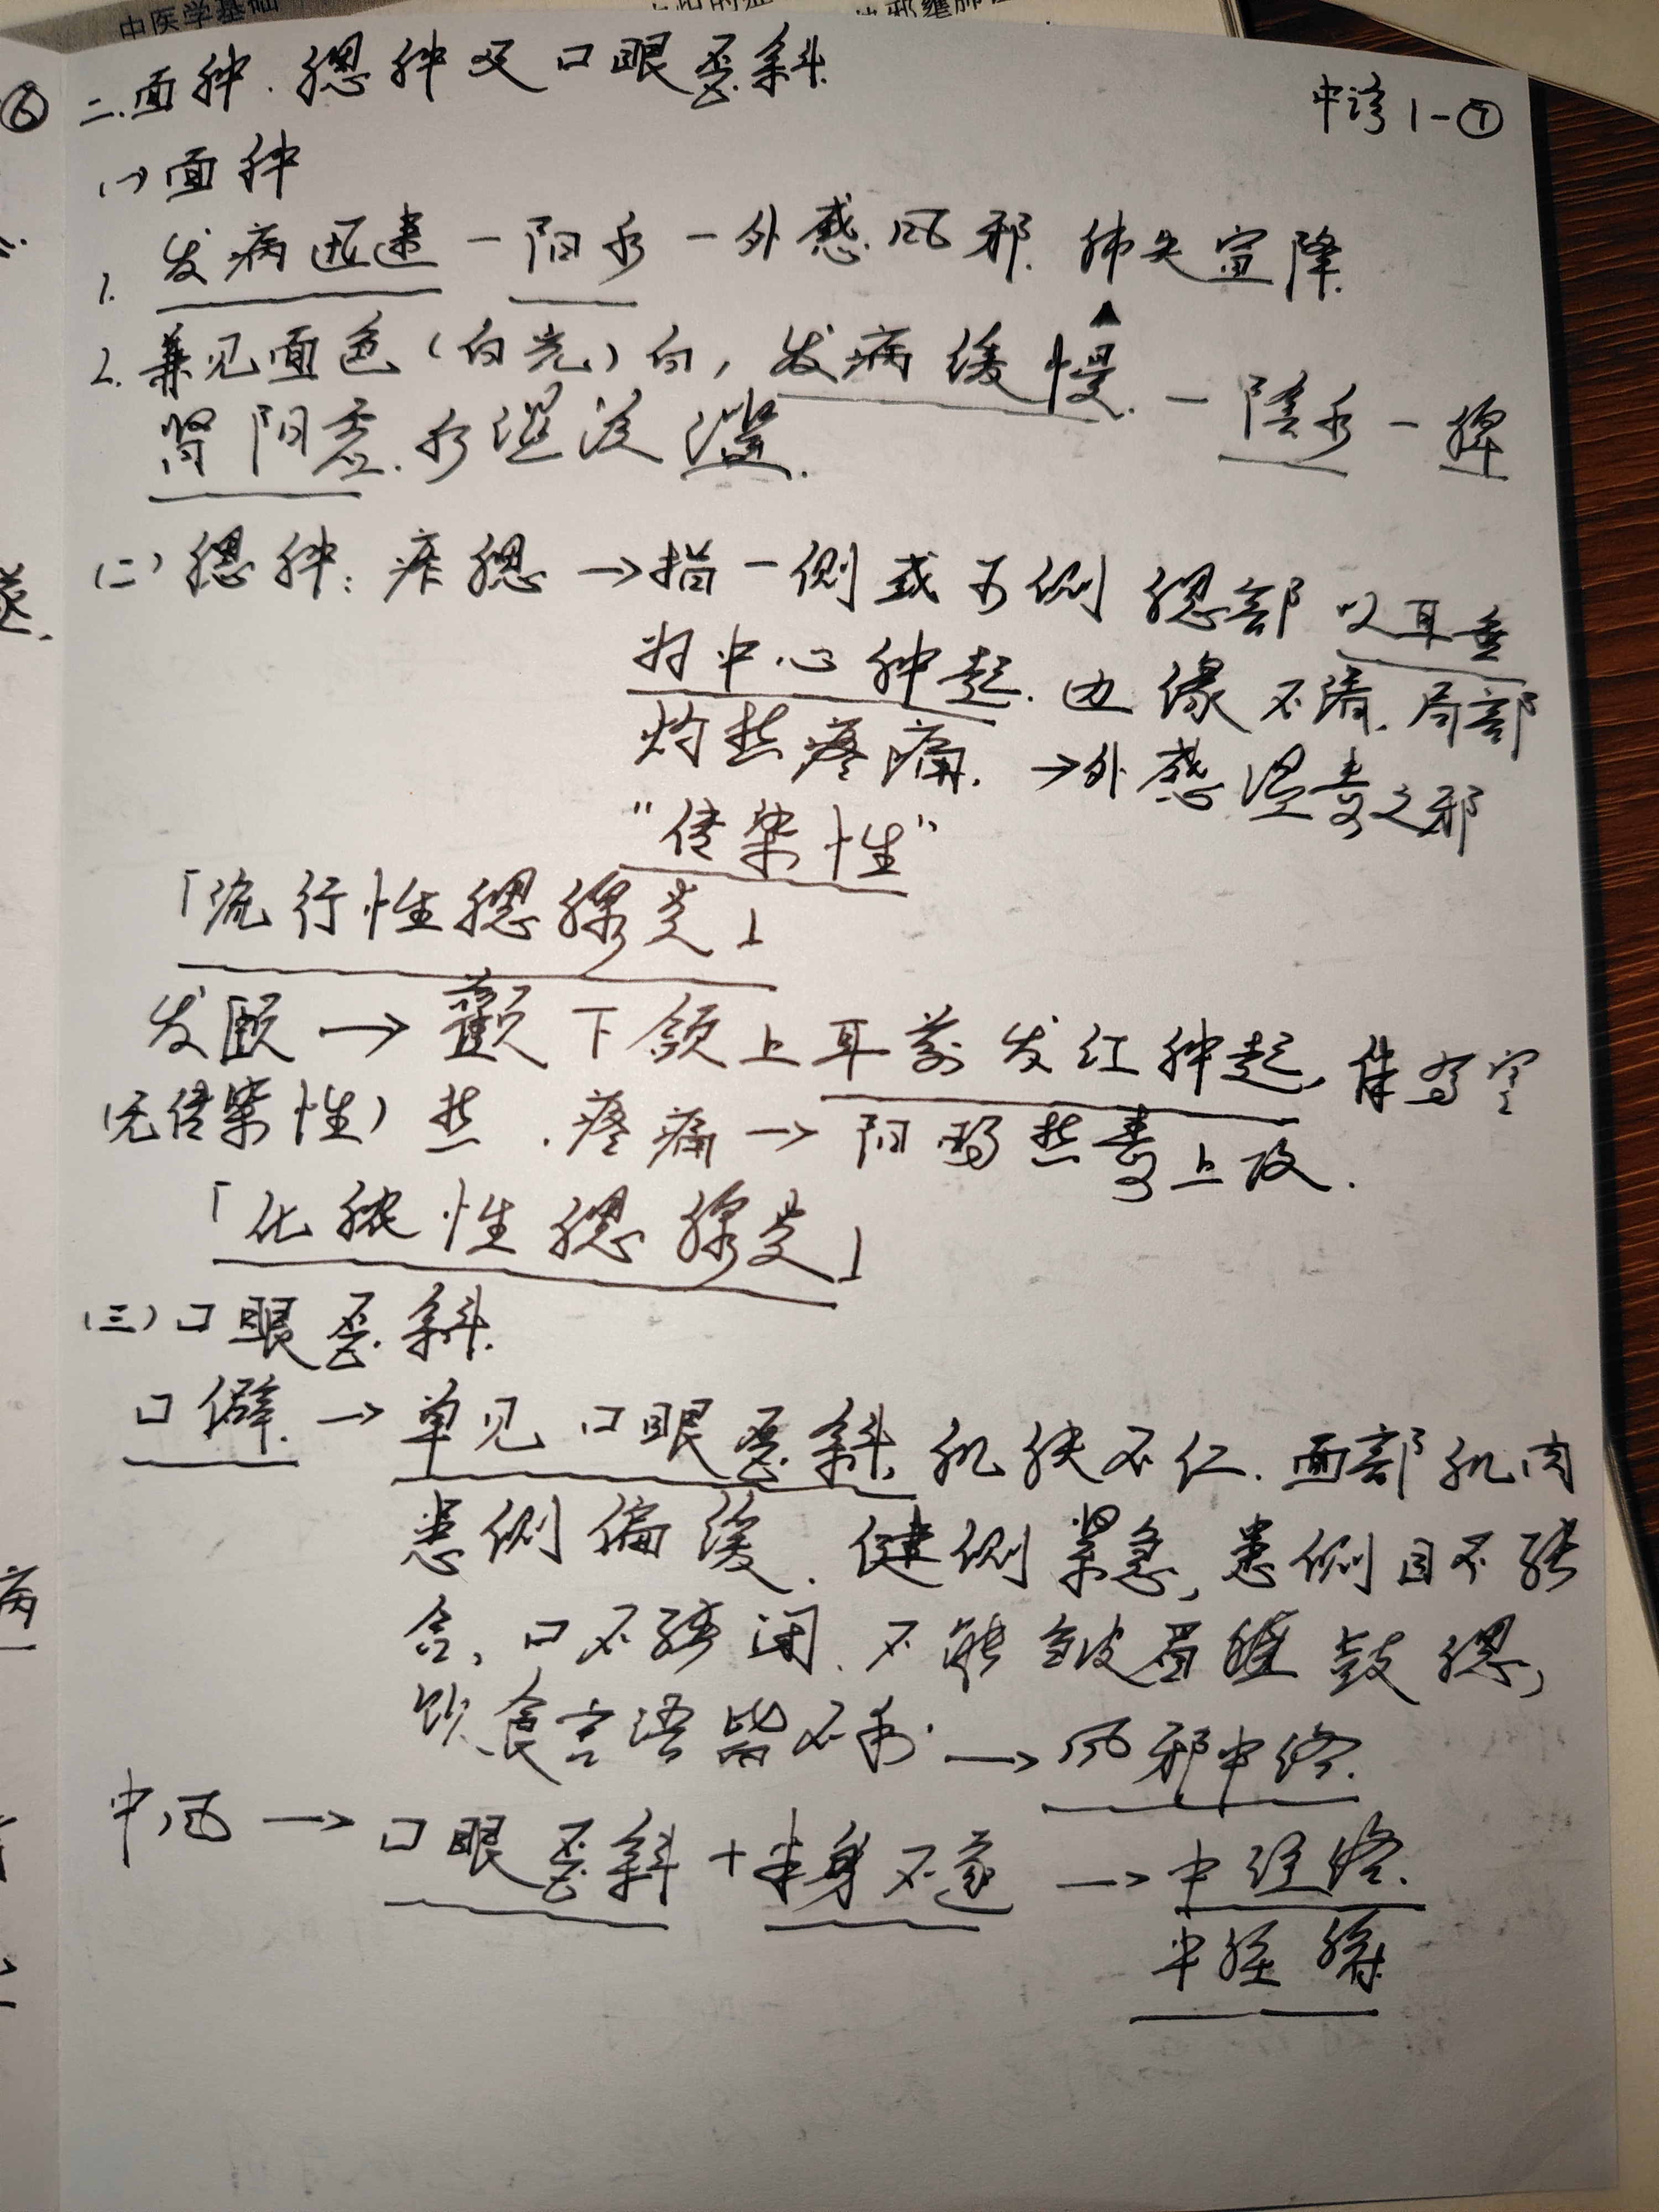 中医学基础
中诊1-⑦
⑥
二.面肿.腮肿及口眼歪斜.
(一)面肿
1. 发病迅速-阳水-外感风邪.肺失宣降.
2. 兼见面色(白光)白,发病缓慢.-陰水-脾
肾阳虚.水湿泛溢.
(二)腮肿:痄腮→指一侧或两侧腮部以耳垂
为中心肿起.边缘不清.局部
灼热疼痛.→外感温毒之邪
“传染性”
「流行性腮腺炎」
发颐→颧下颌上耳前发红肿起,伴寒
(无传染性)热.疼痛→阳明热毒上攻.
「化脓性腮腺炎」
(三)口眼歪斜.
口僻.→单见口眼歪斜,肌肤不仁.面部肌肉
患侧偏缓.健侧紧急,患侧目不能
合,口不能闭.不能皱眉鼓腮,
饮食言语皆不利.→风邪中络.
中风→口眼歪斜+半身不遂→中经络.
中脏腑
病